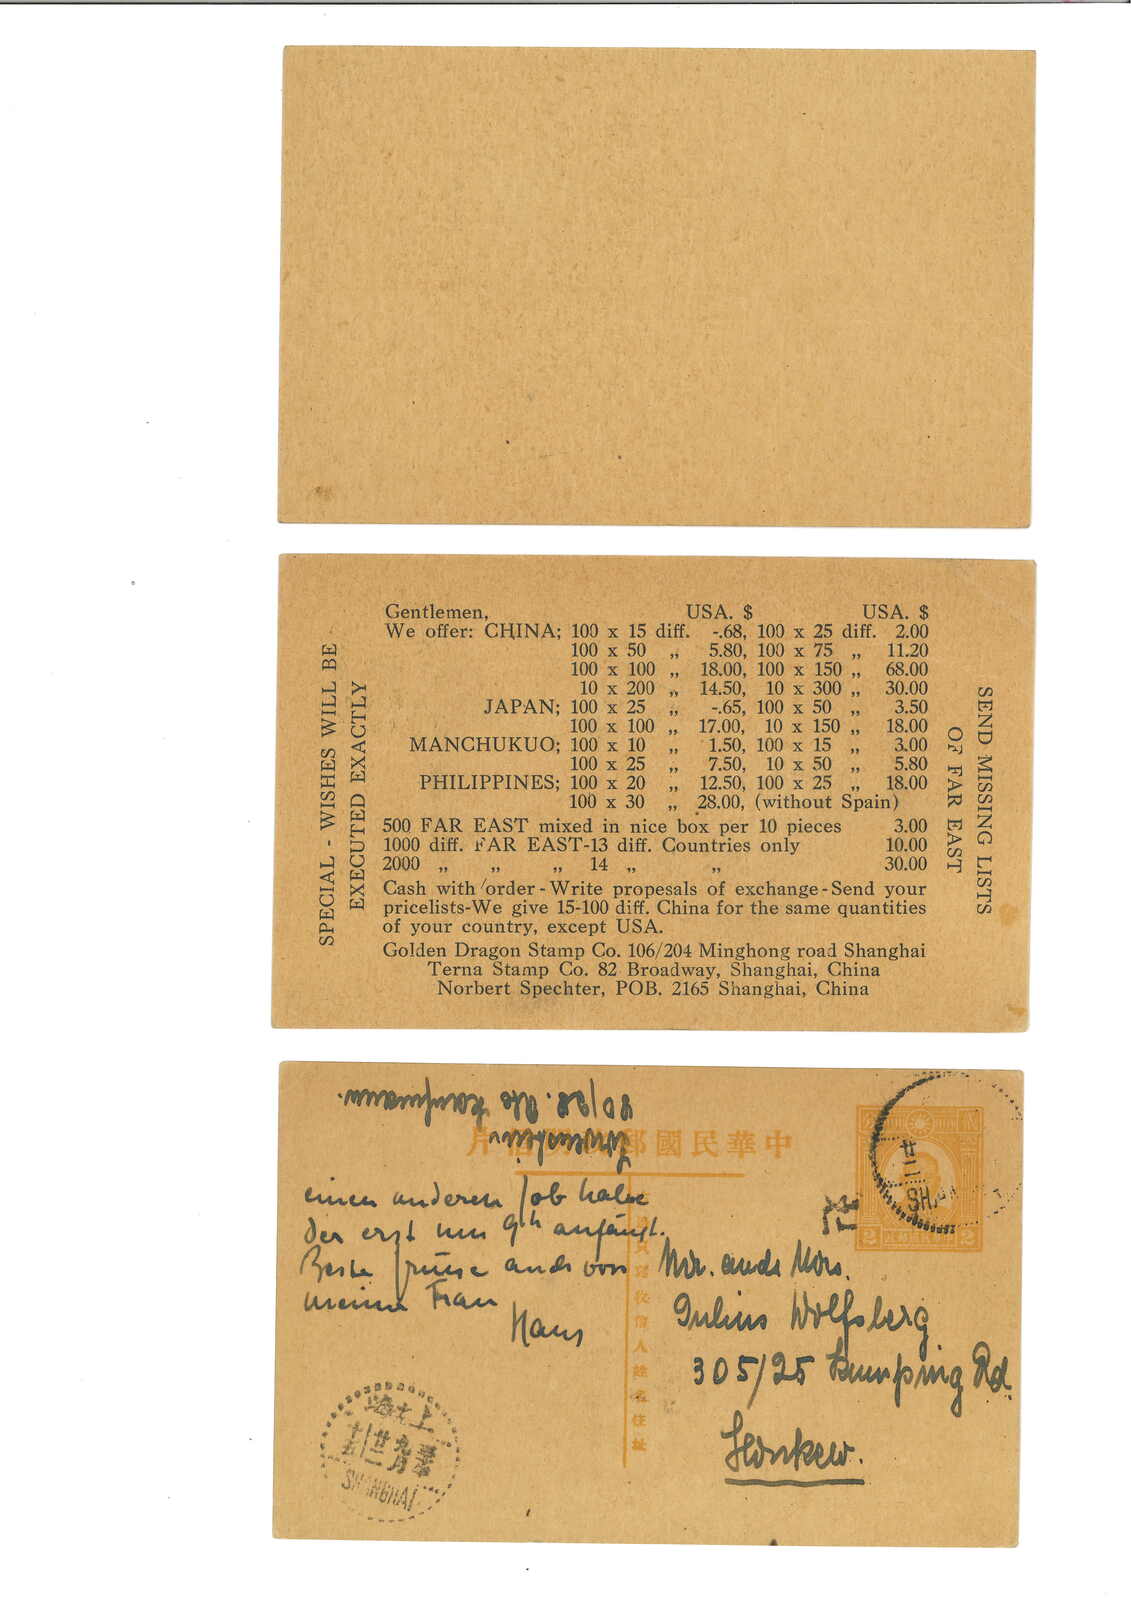 Gentlemen, USA. $ USA. $
We offer: CHINA; 100 x 15 diff. -.68, 100 x 25 diff. 2.00
100 x 50 „ 5.80, 100 x 75 „ 11.20
100 x 100 „ 18.00, 100 x 150 „ 68.00
10 x 200 „ 14.50, 10 x 300 „ 30.00
JAPAN; 100 x 25 „ -.65, 100 x 50 „ 3.50
100 x 100 „ 17.00, 10 x 150 „ 18.00
MANCHUKUO; 100 x 10 „ 1.50, 100 x 15 „ 3.00
100 x 25 „ 7.50, 10 x 50 „ 5.80
PHILIPPINES; 100 x 20 „ 12.50, 100 x 25 „ 18.00
100 x 30 „ 28.00, (without Spain)
500 FAR EAST mixed in nice box per 10 pieces 3.00
1000 diff. FAR EAST-13 diff. Countries only 10.00
2000 „ „ „ 14 „ „ 30.00
Cash with order - Write propesals of exchange - Send your
pricelists-We give 15-100 diff. China for the same quantities
of your country, except USA.
Golden Dragon Stamp Co. 106/204 Minghong road Shanghai
Terna Stamp Co. 82 Broadway, Shanghai, China
Norbert Spechter, POB. 2165 Shanghai, China
SPECIAL - WISHES WILL BE
EXECUTED EXACTLY
SEND MISSING LISTS
OF FAR EAST
中華民國郵
片
einen anderen Job habe
der erst um 9h anfängt.
Beste Grüsse auch von
meiner Frau
Hans
Mr. and Mrs.
Julius Wolfsberg
305/25 Kunping Rd.
Honkew.
收信人姓名住址
2 2
SHANGHAI
上海